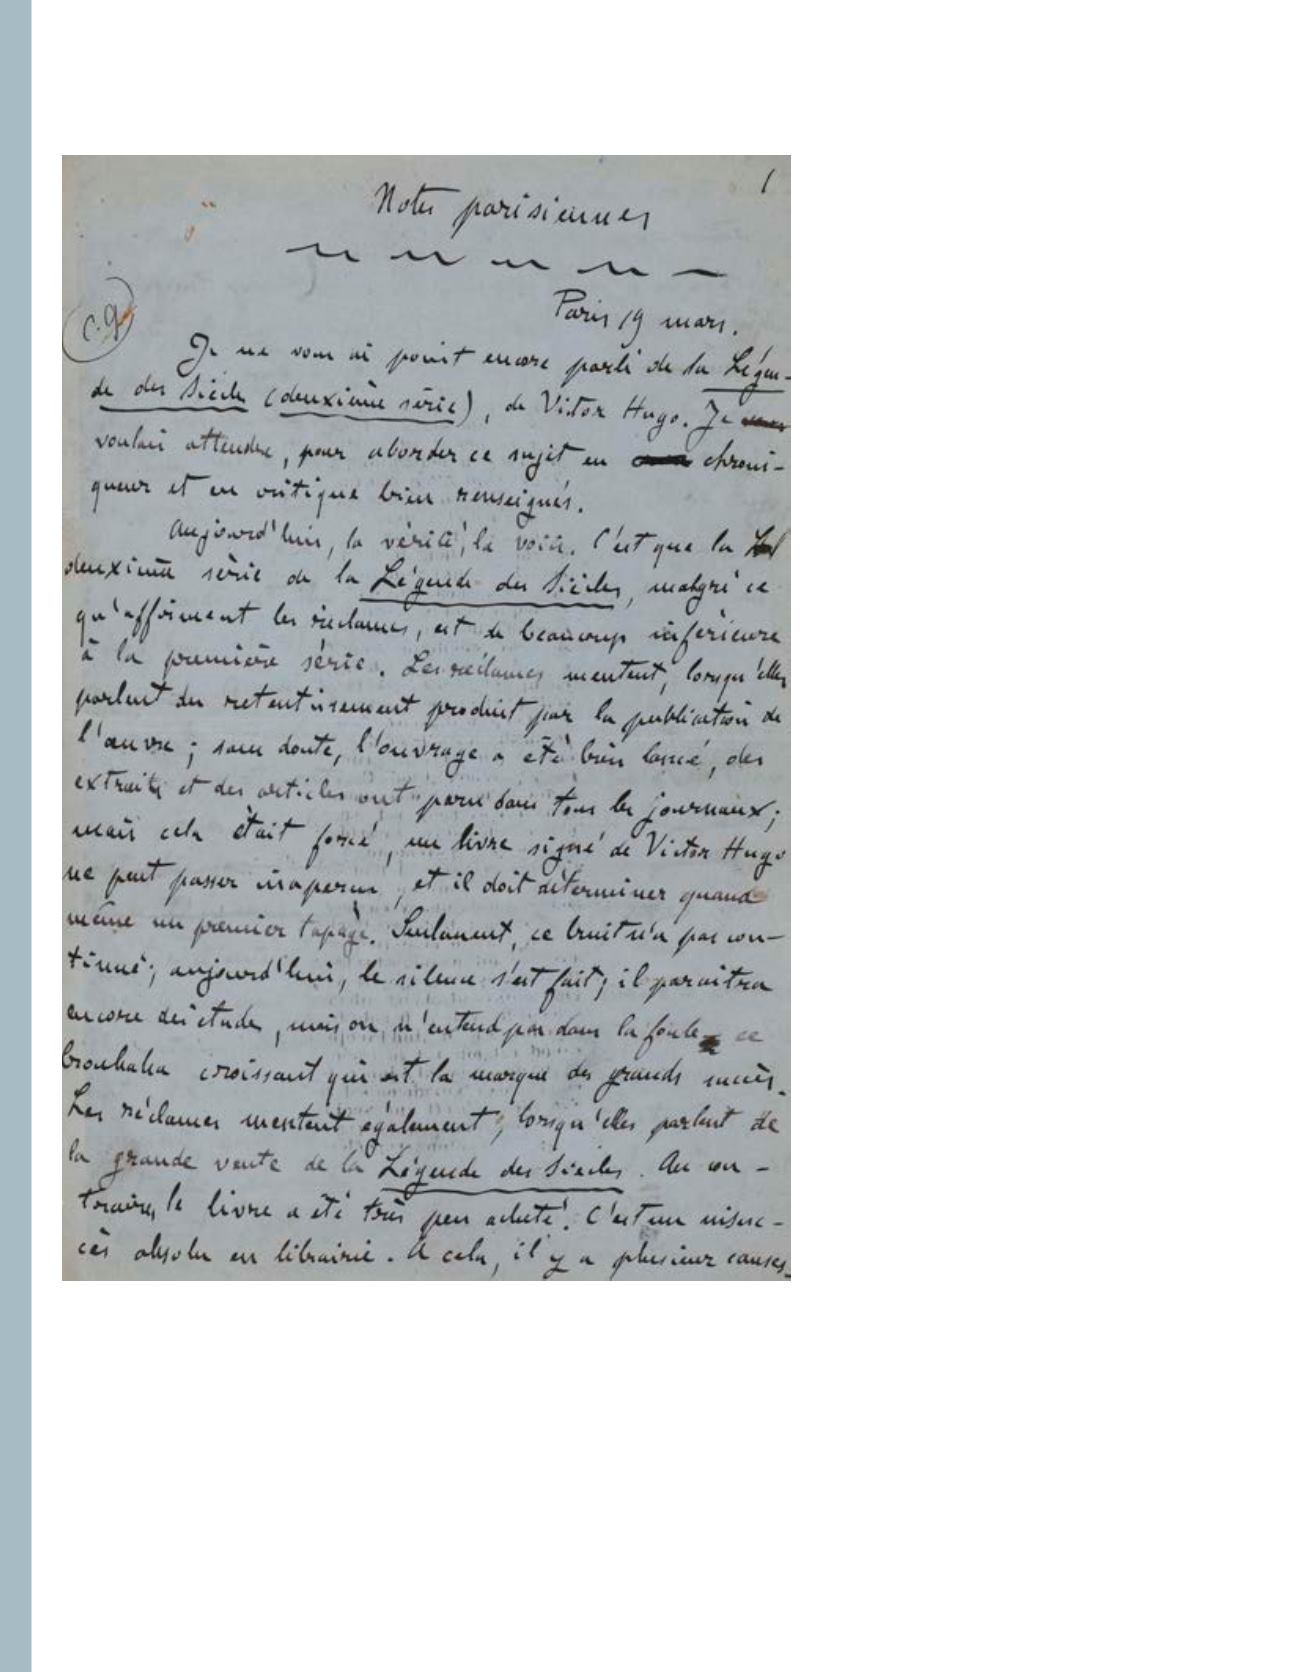 1
Notes parisiennes
Paris 19 mars.
c.9
Je ne vous ai point encore parlé de la Légen-
de des Siècles (deuxième série), de Victor Hugo. Je
voulais attendre, pour aborder ce sujet en chroni-
queur et en critique bien renseignés.
Aujourd'hui, la vérité, la voici. C'est que la
deuxième série de la Légende des Siècles, malgré ce
qu'affirment les réclames, est de beaucoup inférieure
à la première série. Les réclames mentent, lorsqu'elles
parlent du retentissement produit par la publication de
l'œuvre ; sans doute, l'ouvrage a été bien lancé, des
extraits et des articles ont paru dans tous les journaux ;
mais cela était forcé, un livre signé de Victor Hugo
ne peut passer inaperçu, et il doit déterminer quand
même un premier tapage. Seulement, ce bruit n'a pas con-
tinué ; aujourd'hui, le silence s'est fait ; il paraîtra
encore des études, mais on n'entend pas dans la foule ce
brouhaha croissant qui est la marque des grands succès.
Les réclames mentent également, lorsqu'elles parlent de
la grande vente de la Légende des Siècles. Au con-
traire, le livre a été très peu acheté. C'est un insuc-
cès absolu en librairie. A cela, il y a plusieurs causes.